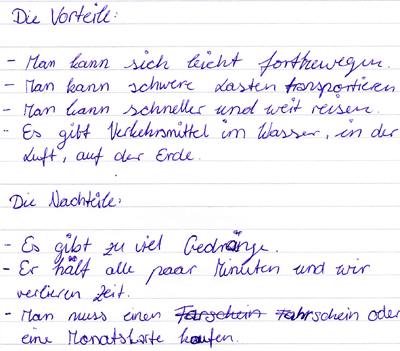 Die Vorteile:
- Man kann sich leicht fortbewegen.
- Man kann schwere Lasten transportieren
- Man kann schneller und weit reisen.
- Es gibt Verkehrsmittel im Wasser, in der
Luft, auf der Erde.
Die Nachteile:
- Es gibt zu viel Gedränge.
- Er hält alle paar Minuten und wir
verlieren Zeit.
- Man muss einen Farschein Fahrschein oder
eine Monatskarte kaufen.